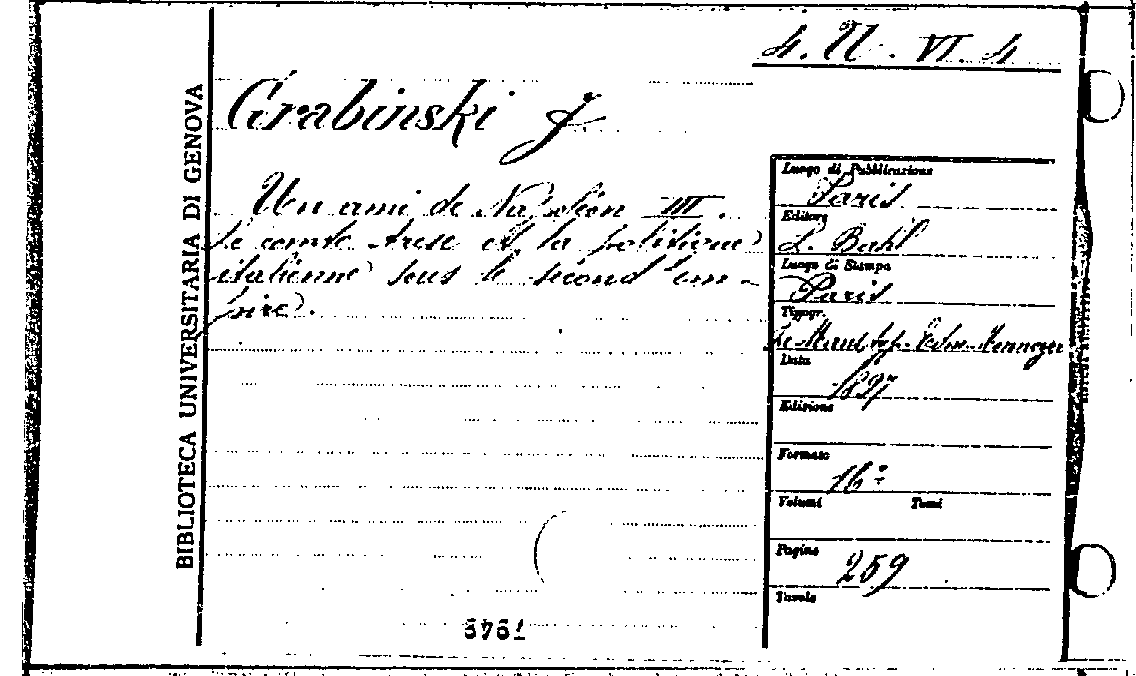 4. N. VI. 4
BIBLIOTECA UNIVERSITARIA DI GENOVA
Grabinski J
Un ami de Napoléon III.
Le comte Arese et la politique
italienne sous le second em-
pire.
Luogo di Pubblicazione
Paris
Editore
L. Bahl
Luogo di Stampa
Paris
Tipogr.
Le Mans typ. Edm. Monnoyer
Data
1897
Edizione
Formato
16°
Volumi Tomi
Pagine
259
Tavole
1949